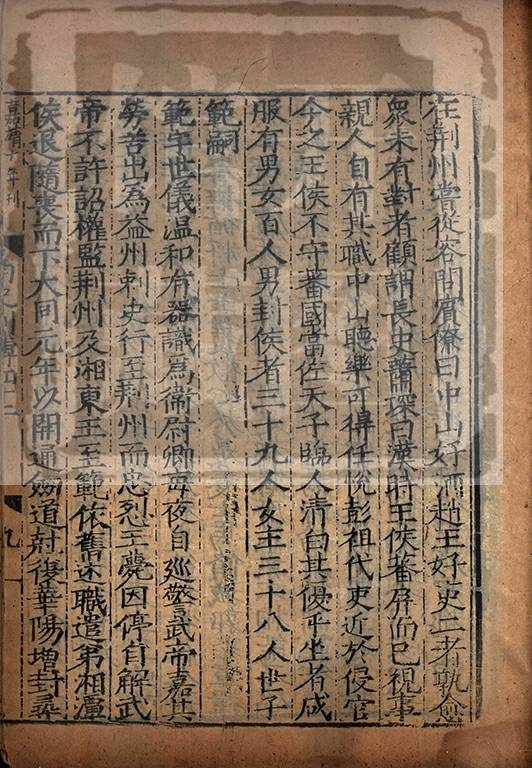 在荆州嘗從容問賔僚曰中山好酒趙王好吏二者孰愈
衆未有對者顧謂長史蕭琛曰漢時王侯蕃屏而已視事
親人自有其職中山聽樂可得任恱彭祖代吏近於侵官
今之王侯不守蕃國當佐天子臨人清白其優乎坐者咸
服有男女百人男封侯者三十九人女主三十八人世子
範嗣
範字世儀温和有器識爲衞尉卿每夜自巡警武帝嘉其
勞苦出為益州刺史行至荆州而忠烈王薨因停自解武
帝不許詔權監荆州及湘東王至範依舊述職遣弟湘潭
侯退隨喪而下大同元年以開通劒道尅復華陽増封尋
九